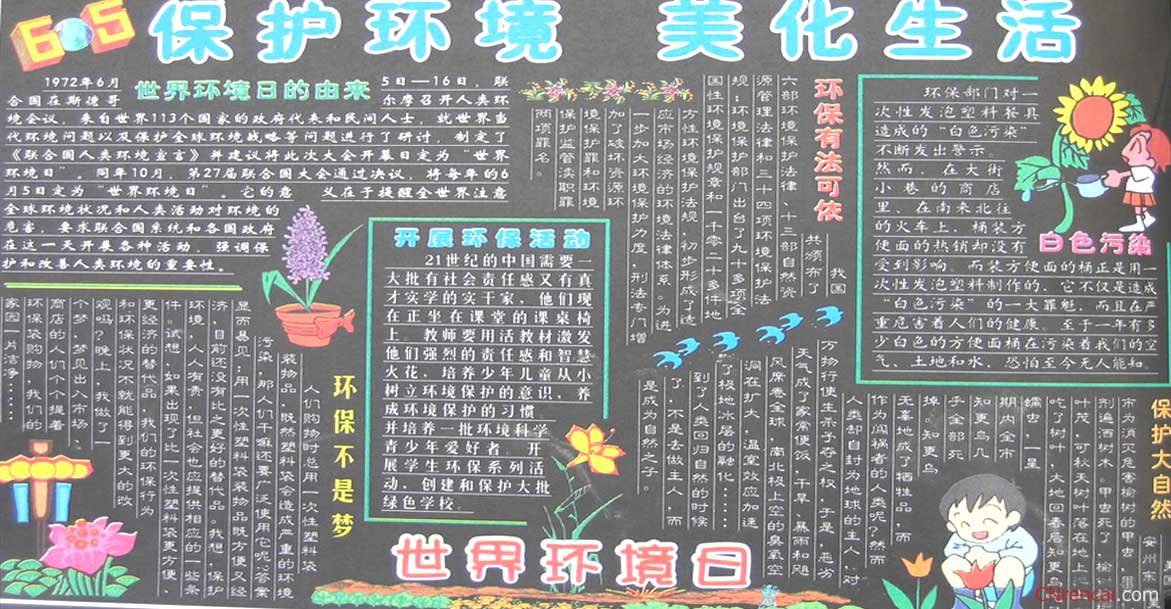 6 5
保护环境 美化生活
世界环境日的由来
1972年6月5日—16日，联
合国在斯德哥尔摩召开人类环
境会议，来自世界113个国家的政府代表和民间人士，就世界当
代环境问题以及保护全球环境战略等问题进行了研讨，制定了
《联合国人类环境宣言》并建议将此次大会开幕日定为“世界
环境日”。同年10月，第27届联合国大会通过决议，将每年的6
月5日定为“世界环境日”。它的意 义在于提醒全世界注意
全球环境状况和人类活动对环境的
危害，要求联合国系统和各国政府
在这一天开展各种活动，强调保
护和改善人类环境的重要性。
环保有法可依
我国
共颁布了
六部环境保护法律、十三部自然资
源管理法律和三十四项环境保护法
规；环境保护部门出台了九十多项全
国性环境保护规章和一千零二十多件地
方性环境保护法规，初步形成了适
应市场经济的环境法律体系。为进
一步加大环境保护力度，刑法专门增
加了破坏资源环
境保护罪和环境
保护监管渎职罪
两项罪名。
环保部门对一
次性发泡塑料餐具
造成的“白色污染”
不断发出警示。
然而，在大街
小巷的商店
里，在南来北往
的火车上，桶装方
便面的热销却没有
受到影响。而装方便面的桶正是用一
次性发泡塑料制作的，它不仅是造成
“白色污染”的一大罪魁，而且在严
重危害着人们的健康。至于一年有多
少白色的方便面桶在污染着我们的空
气、土地和水，恐怕至今无人能知。
白色污染
开展环保活动
21世纪的中国需要一
大批有社会责任感又有真
才实学的实干家，他们现
在正坐在课堂的课桌椅
上，教师要用活教材激发
他们强烈的责任感和智慧
火花，培养少年儿童从小
树立环境保护的意识，养
成环境保护的习惯。
并培养一批环境科学
青少年爱好者。开
展学生环保系列活
动，创建和保护大批
绿色学校。
环保不是梦
人们购物时总用一次性塑料袋
装物品，既然塑料袋会造成严重的环境
污染，那人们干嘛还要广泛使用它呢？答案
显而易见：用一次性塑料袋装物品既方便又经
济，目前还没有比之更好的替代品。我想，保护
环境，人人有责，但社会也应提供相应的一些条
件。试想，如果出现了比一次性塑料袋更方便、
更经济的替代品，我们的环保行为
和环保状况不就能得到更大的改
观吗？晚上，我做了一
个梦，梦见出入市场、
商店的人们个个提着
环保袋购物，我们的
家园一片洁净……
万物行使生杀予夺之权，于是，恶劣
天气成了家常便饭，干旱、暴雨和飓
风席卷全球，南北极上空的臭氧空
洞在扩大，温室效应加速
了极地冰层的融化……
到了人类回归自然的时候
了，不是去做主人，而
是成为自然之子。
保护大自然
安州
市为消灭危害榆树的甲虫，
剂遍洒树木。甲虫死了，榆
叶茂，可秋天树叶落在地上
吃了树叶，大地回春后知更鸟
蠕虫，一星
期内全市
知更鸟几
乎全部死
掉。知更鸟
无辜地成了牺牲品，而
作为闯祸者的人类呢？然而
人类却自封为地球的主人，对
世界环境日
CNrencai.com